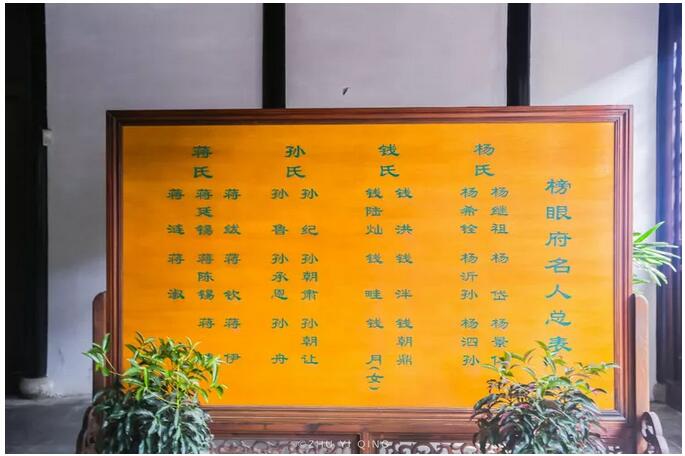 榜眼府名人总表
杨氏
杨继祖 杨岱 杨景
杨希铨 杨沂孙 杨泗孙
钱氏
钱洪 钱泮 钱朝鼎
钱陆灿 钱畦 钱月(女)
孙氏
孙纪 孙朝肃 孙朝让
孙鲁 孙承恩 孙舟
蒋氏
蒋绂 蒋钦 蒋伊
蒋廷锡 蒋陈锡 蒋
蒋涟 蒋溆
©ZHU YI QING